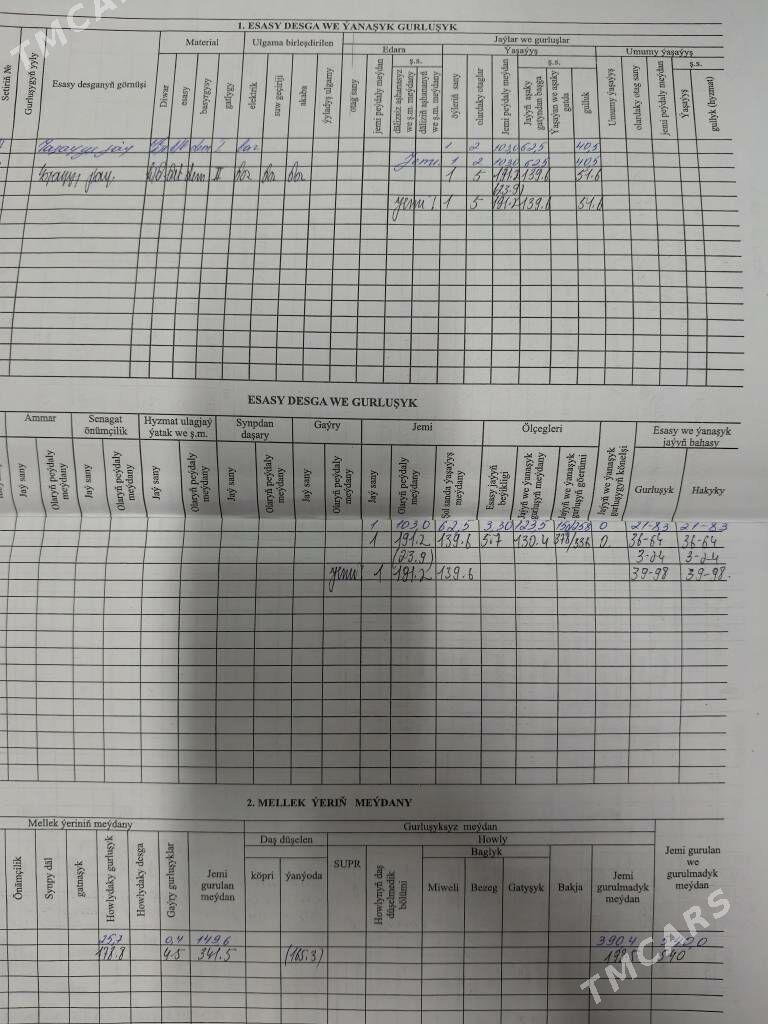 TMCARS
1. ESASY DESGA WE ÝANAŞYK GURLUŞYK
Setiriň №
Gurluşygyň ýyly
Esasy desganyň görnüşi
Material
Ulgama birleşdirilen
Jaýlar we gurluşlar
Diwar
esasy
basyrgysy
gatlygy
elektrik
suw geçiriji
akaba
ýyladyş ulgamy
Edara
Ýaşaýyş
Umumy ýaşaýyş
otag sany
jemi peýdaly meýdan
ş.s.
öýleriň sany
olardaky otaglar
Jemi peýdaly meýdan
ş.s.
gulluk
Umumy ýaşaýyş
olardaky otag sany
jemi peýdaly meýdan
ş.s.
Ýaşaýyş
gullyk (hyzmat)
Ýaşaýyş jaý I bar 1 2 103.0 62,5 40,5
Jemi 1 2 103.0 62.5 40,5
Ýaşaýyş jaý II bar bar bar 1 5 191.2 139.6 51.6
(23.9)
Jemi 1 5 191.2 139.6 51.6
ESASY DESGA WE GURLUŞYK
Ammar
Senagat önümçilik
Hyzmat ulagjaý ýatak we ş.m.
Synpdan daşary
Gaýry
Jemi
Ölçegleri
Jaýyň we ýanaşyk gurluşygyň könelşi
Esasy we ýanaşyk jaýyň bahasy
Jaý sany
Olaryň peýdaly meýdany
Jaý sany
Olaryň peýdaly meýdany
Jaý sany
Olaryň peýdaly meýdany
Jaý sany
Olaryň peýdaly meýdany
Jaý sany
Olaryň peýdaly meýdany
Jaý sany
Olaryň peýdaly meýdany
Şol sanda ýaşaýyş meýdany
Esasy jaýyň beýikligi
Jaýyň we ýanaşyk gurluşyň meýdany
Jaýyň we ýanaşyk gurluşyň göwrümi
Gurluşyk
Hakyky
1 103,0 62,5 3,30 123,5 0 21-83 21-83
1 191.2 139.6 5.7 130.4 378/336 0 36-64 36-64
(23,9) 3-24 3-24
Jemi 1 191.2 139.6 39-98 39-98
2. MELLEK ÝERIŇ MEÝDANY
Mellek ýeriniň meýdany
Gurluşyksyz meýdan
Önämçilik
Synpy däl
gatnaşyk
Howlydaky gurluşyk
Howlydaky desga
Gaýry gurluşyklar
Jemi gurulan meýdan
Daş düşelen
köpri
ýanýoda
Howly
SUPR
Howlynyň daş düşelmedik bölümi
Baglyk
Miweli
Bezeg
Gatyşyk
Bakja
Jemi gurulmadyk meýdan
Jemi gurulan we gurulmadyk meýdan
25,7 0,4 149,6 390.4
178.8 4.5 341.5 (165.3) 198.5 540
TMCARS
TMCARS